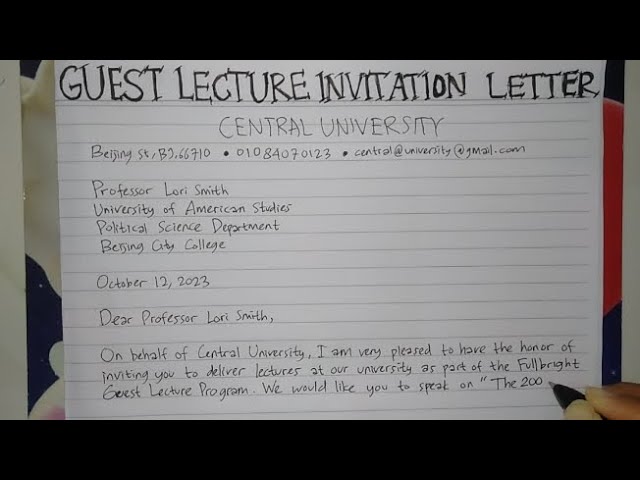 GUEST LECTURE INVITATION LETTER
CENTRAL UNIVERSITY
Beijing St, BJ, 66710 • 01084070123 • central@university@gmail.com
Professor Lori Smith
University of American Studies
Political Science Department
Beijing City College
October 12, 2023
Dear Professor Lori Smith,
On behalf of Central University, I am very pleased to have the honor of
inviting you to deliver lectures at our university as part of the Fullbright
Guest Lecture Program. We would like you to speak on "The 200